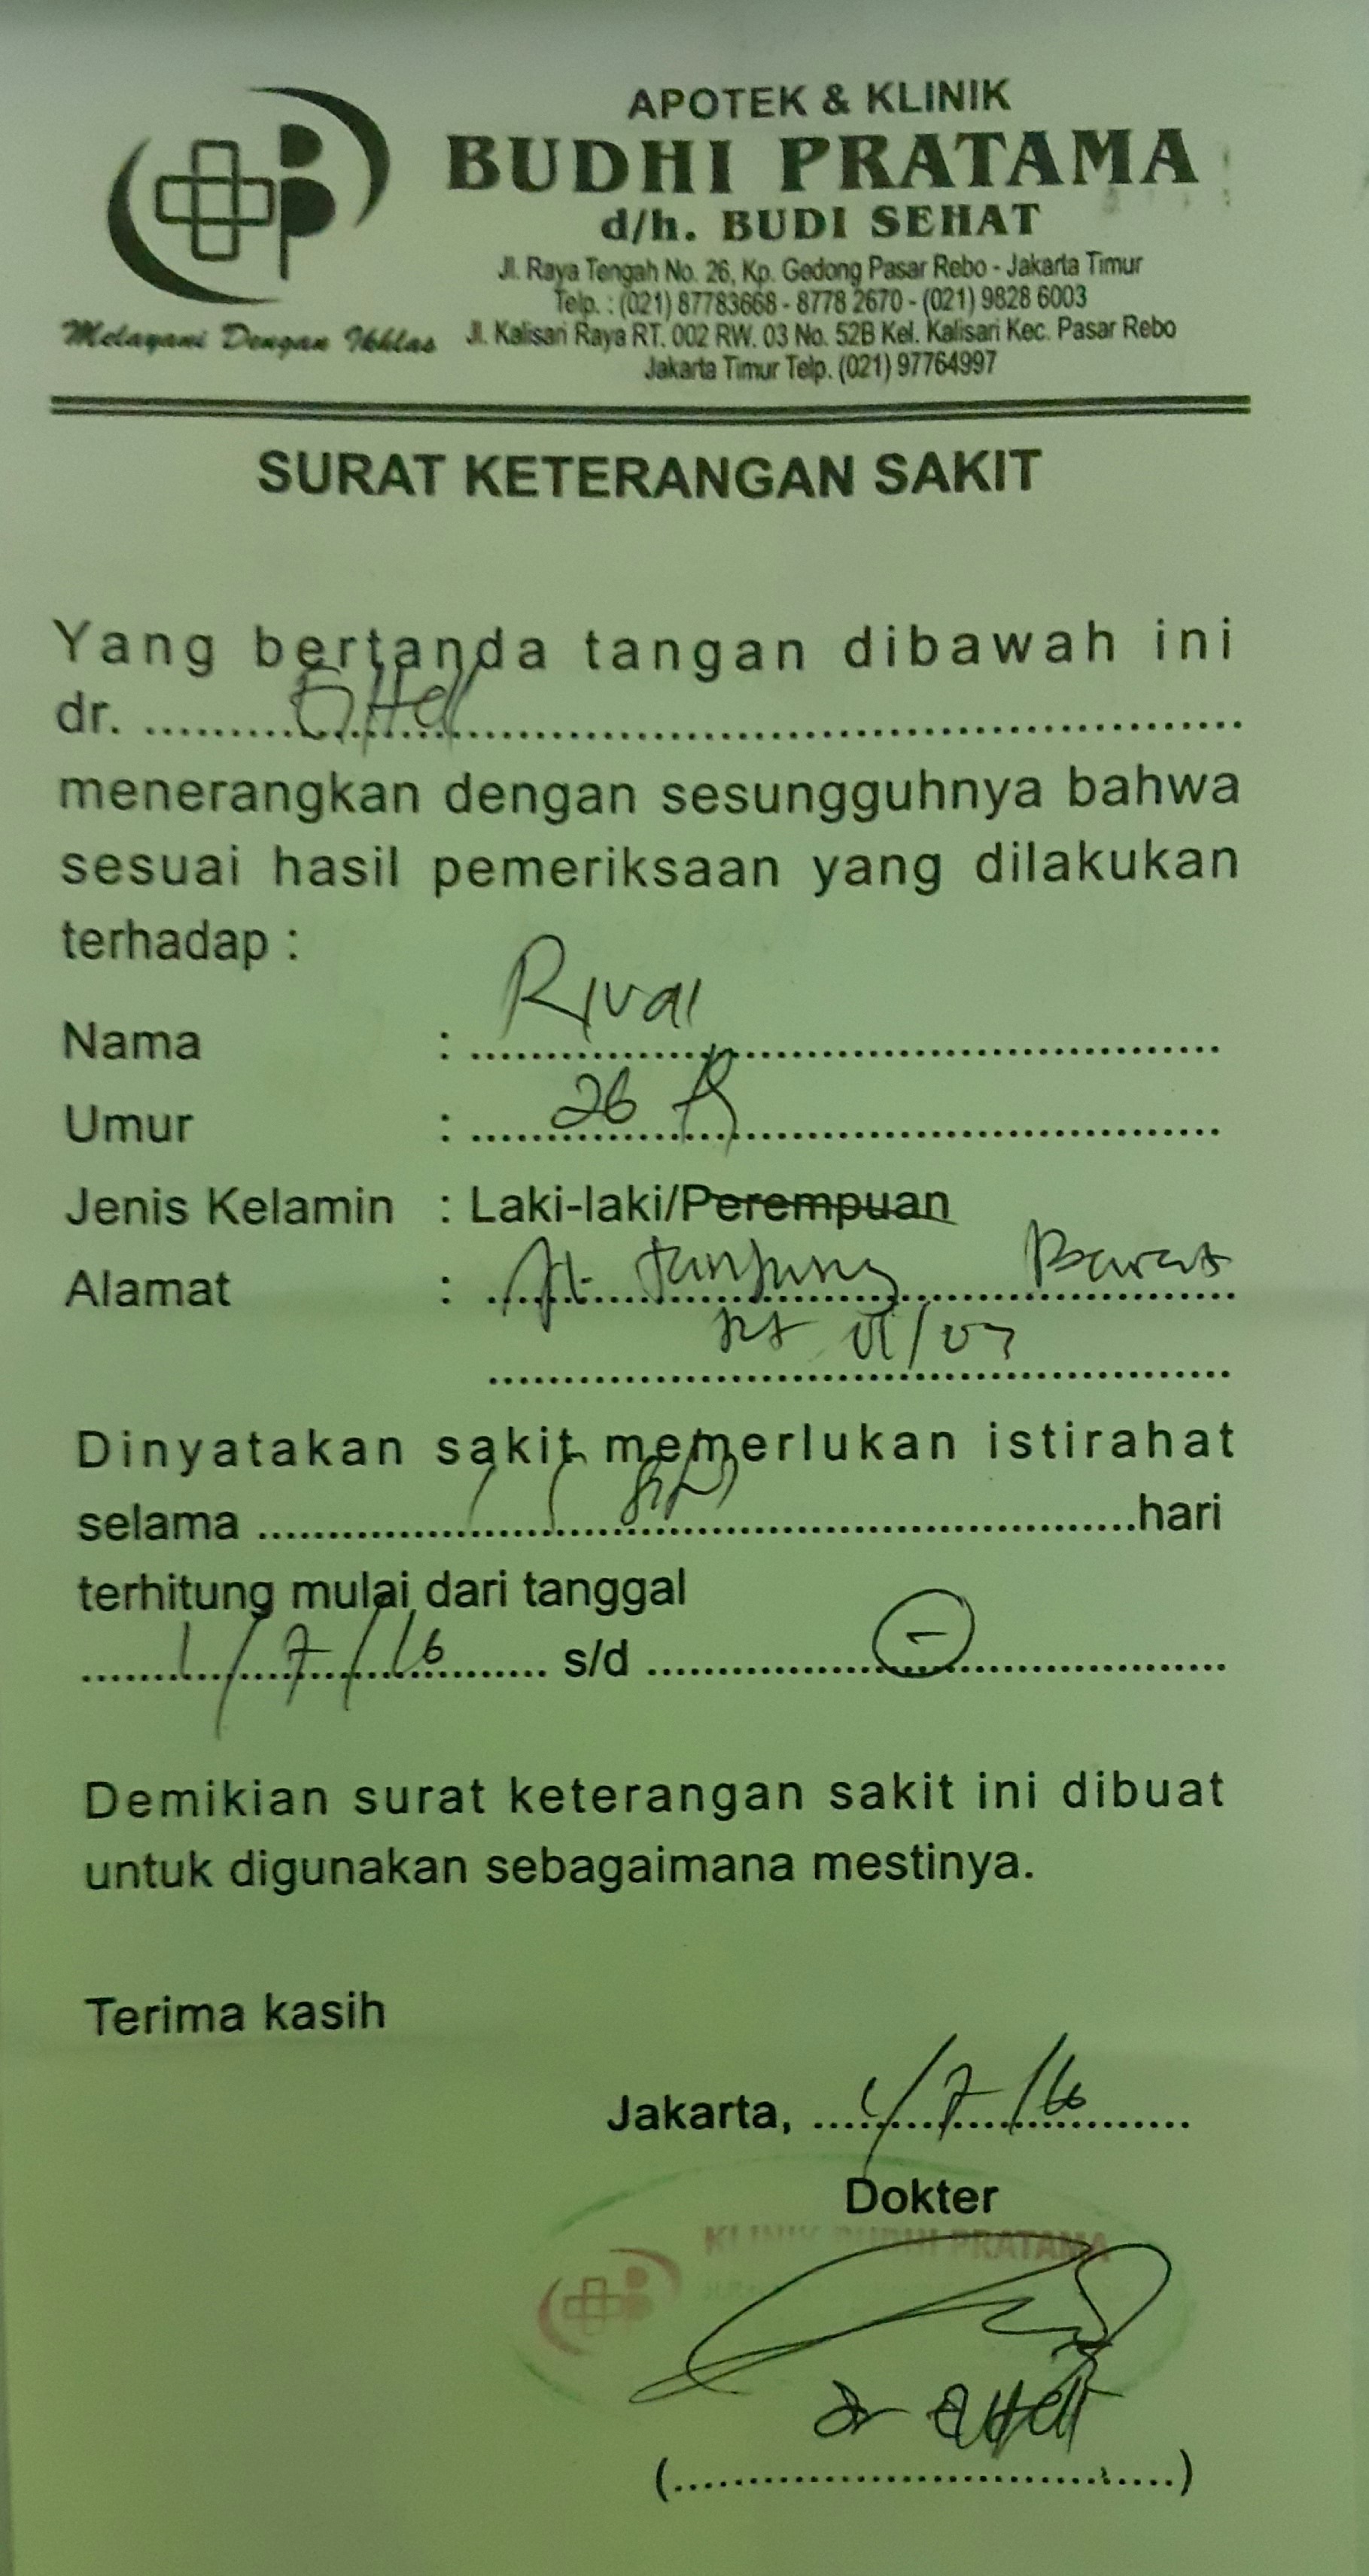 APOTEK & KLINIK
BUDHI PRATAMA
d/h. BUDI SEHAT
Jl. Raya Tengah No. 26, Kp. Gedong Pasar Rebo - Jakarta Timur
Telp. : (021) 87783668 - 8778 2670 - (021) 9828 6003
Melayani Dengan Ikhlas
Jl. Kalisari Raya RT. 002 RW. 03 No. 52B Kel. Kalisari Kec. Pasar Rebo
Jakarta Timur Telp. (021) 97764997
SURAT KETERANGAN SAKIT
Yang bertanda tangan dibawah ini
dr.
menerangkan dengan sesungguhnya bahwa
sesuai hasil pemeriksaan yang dilakukan
terhadap :
Nama : Rivai
Umur : 26
Jenis Kelamin : Laki-laki/Perempuan
Alamat : Jl. Tanjung Barat
Rt
Dinyatakan sakit memerlukan istirahat
selama hari
terhitung mulai dari tanggal
1/7/16 s/d -
Demikian surat keterangan sakit ini dibuat
untuk digunakan sebagaimana mestinya.
Terima kasih
Jakarta, 1/7/16
Dokter
KLINIK BUDHI PRATAMA
dr
(..............................)